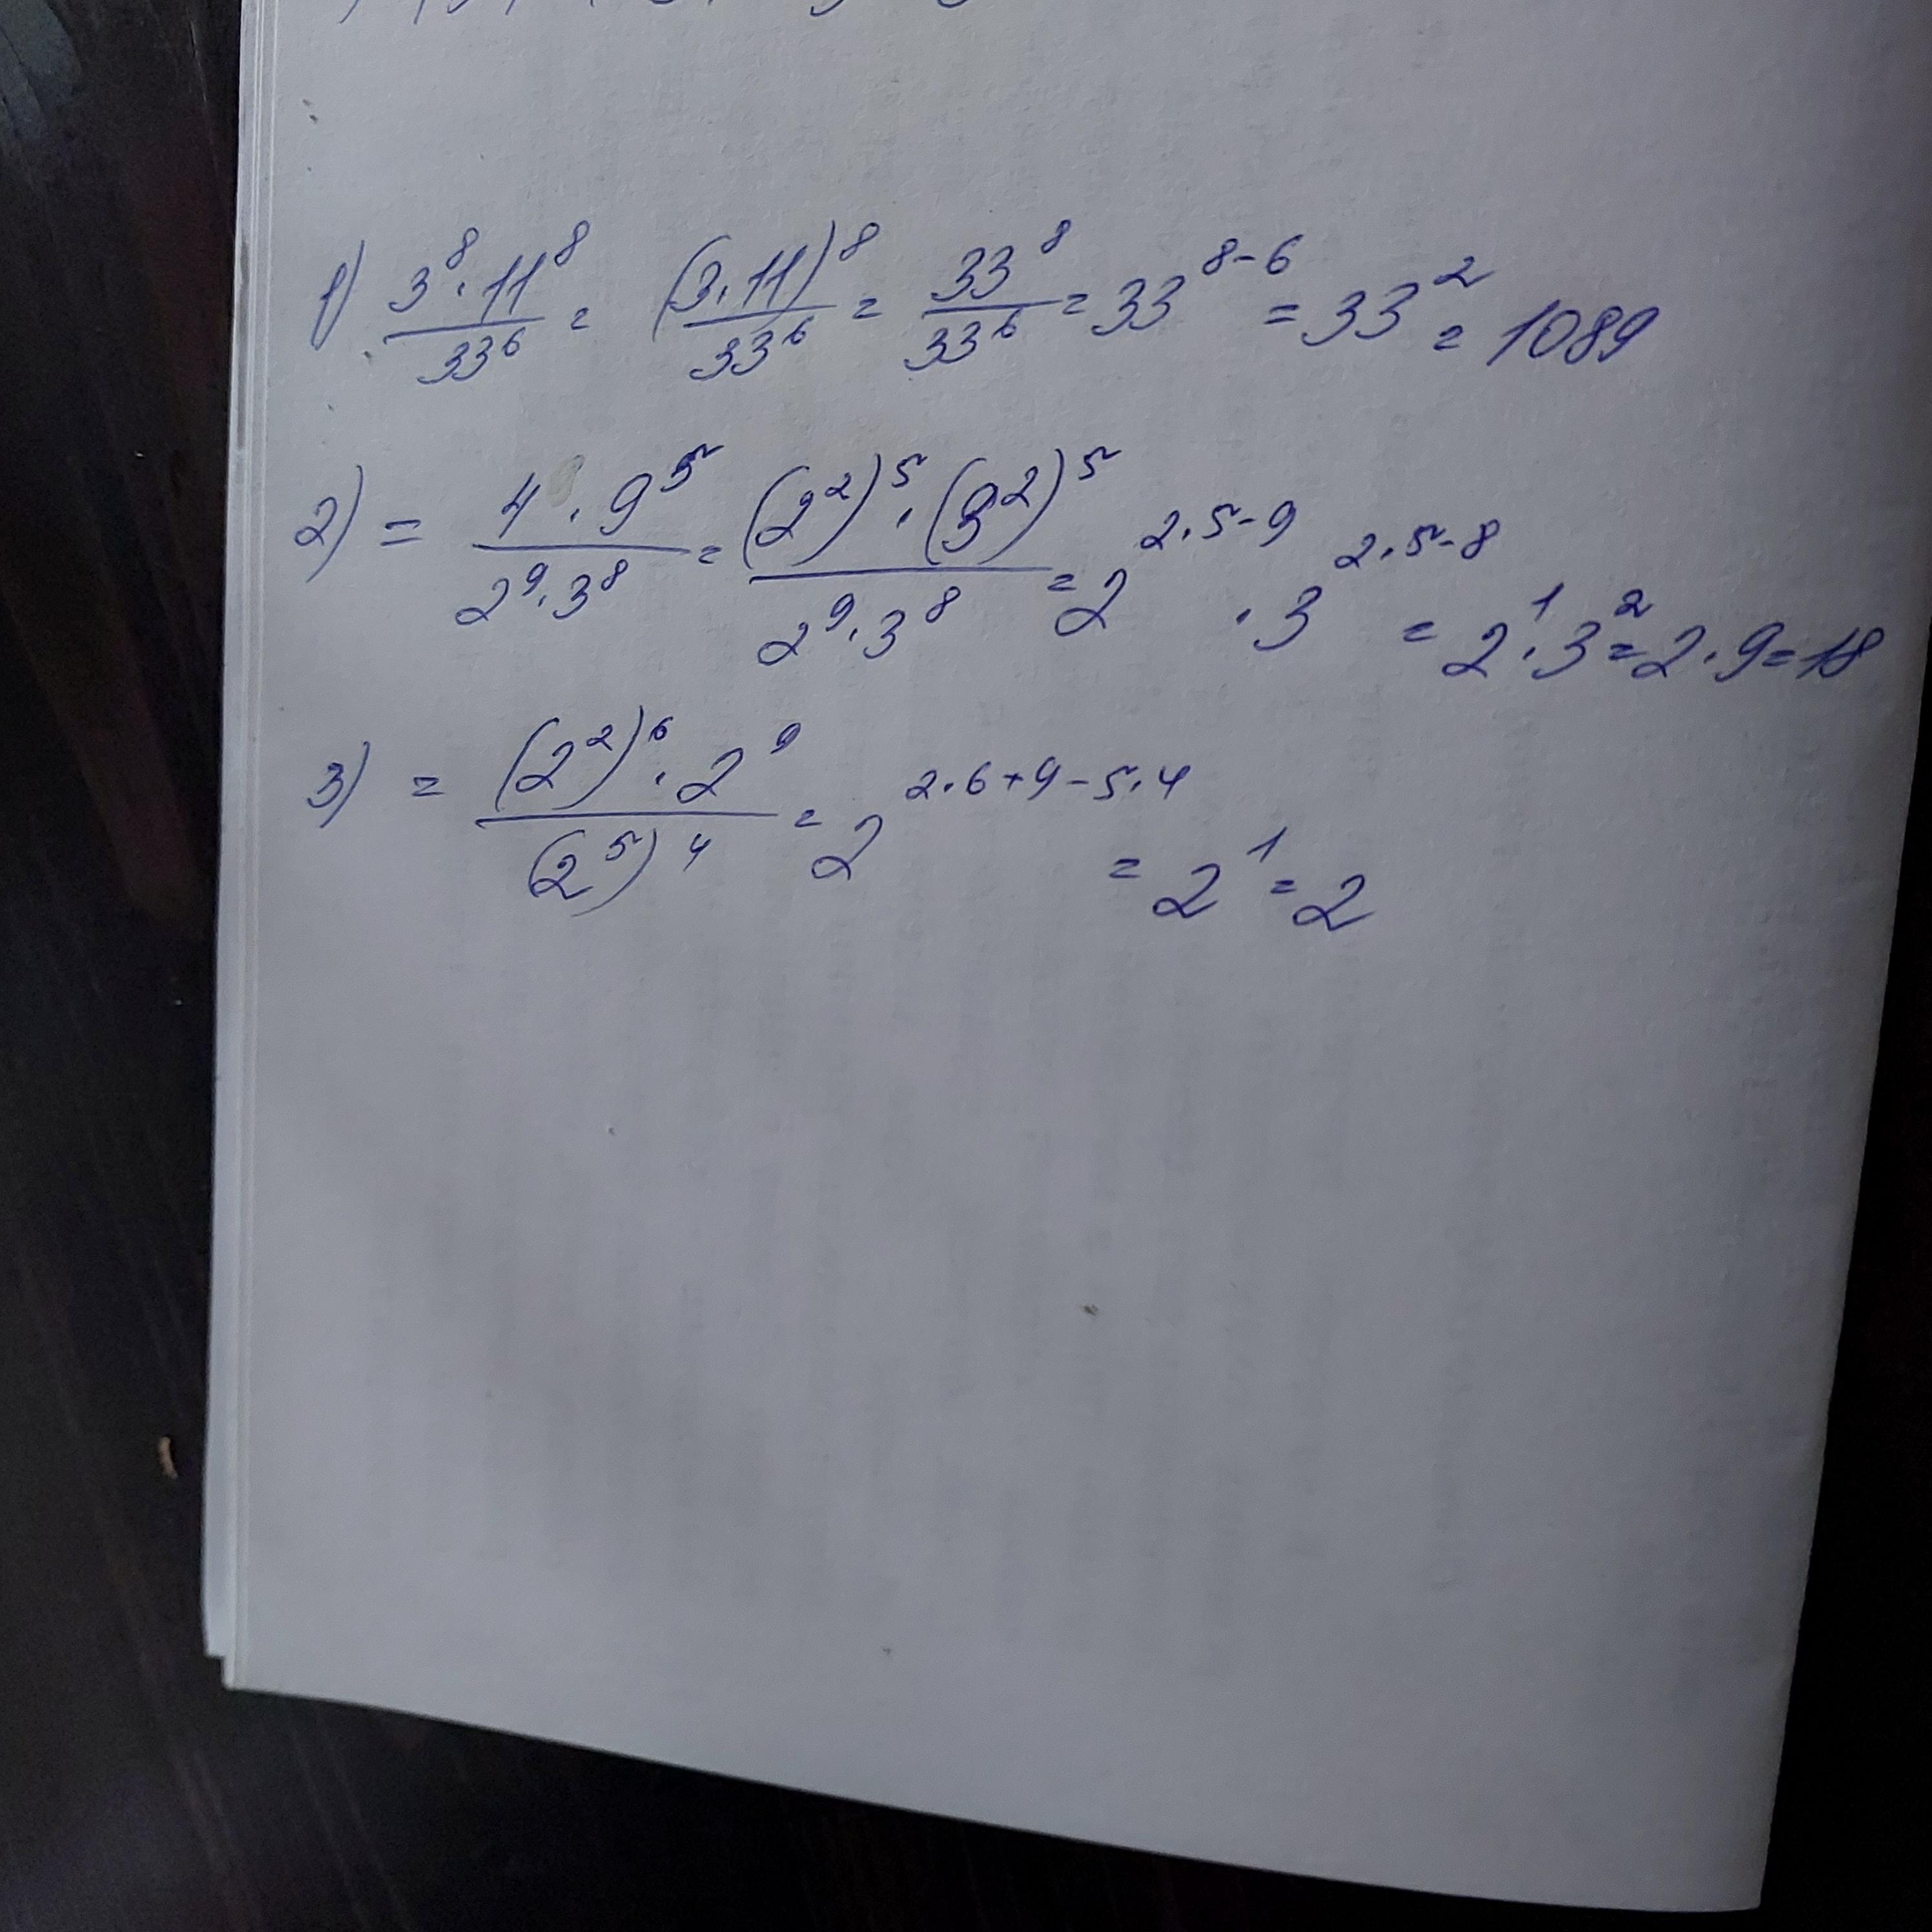 1) 3^8·11^8/33^6 = (3·11)^8/33^6 = 33^8/33^6 = 33^(8-6) = 33^2 = 1089
2) = 4·9^5/2^9·3^8 = (2^2)^5·(3^2)^5/2^9·3^8 = 2^(2·5-9)·3^(2·5-8) = 2^1·3^2 = 2·9 = 18
3) = (2^2)^6·2^9/(2^5)^4 = 2^(2·6+9-5·4) = 2^1 = 2